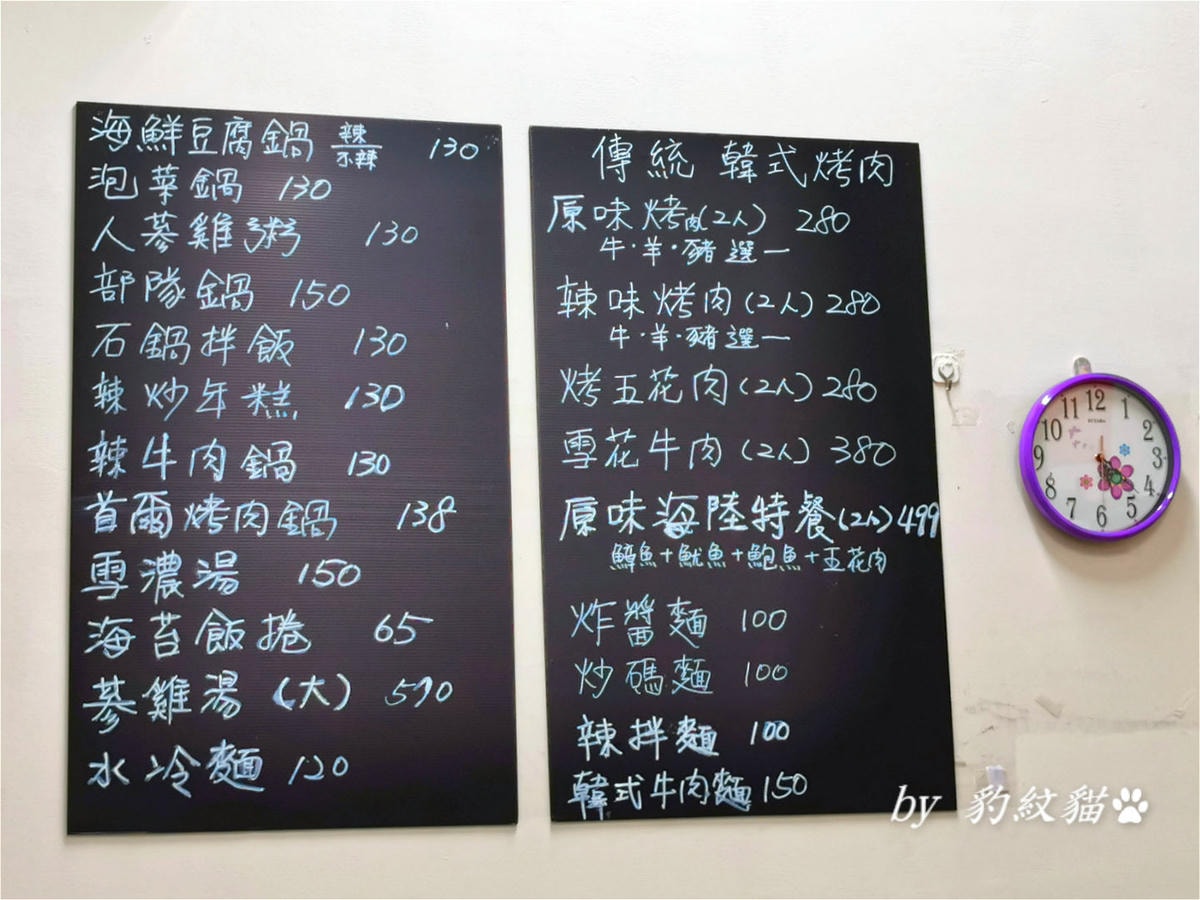 海鮮豆腐鍋 辣/不辣 130
泡菜鍋 130
人蔘雞粥 130
部隊鍋 150
石鍋拌飯 130
辣炒年糕 130
辣牛肉鍋 130
首爾烤肉鍋 138
雪濃湯 150
海苔飯捲 65
蔘雞湯(大) 590
水冷麵 120
傳統 韓式烤肉
原味烤肉(2人) 280
牛·羊·豬 選一
辣味烤肉(2人) 280
牛·羊·豬 選一
烤五花肉(2人) 280
雪花牛肉(2人) 380
原味海陸特餐(2人) 499
鱆魚+魷魚+鮑魚+五花肉
炸醬麵 100
炒碼麵 100
辣拌麵 100
韓式牛肉麵 150
12 1 2 3 4 6 7 8 9 10 11
by 豹紋貓